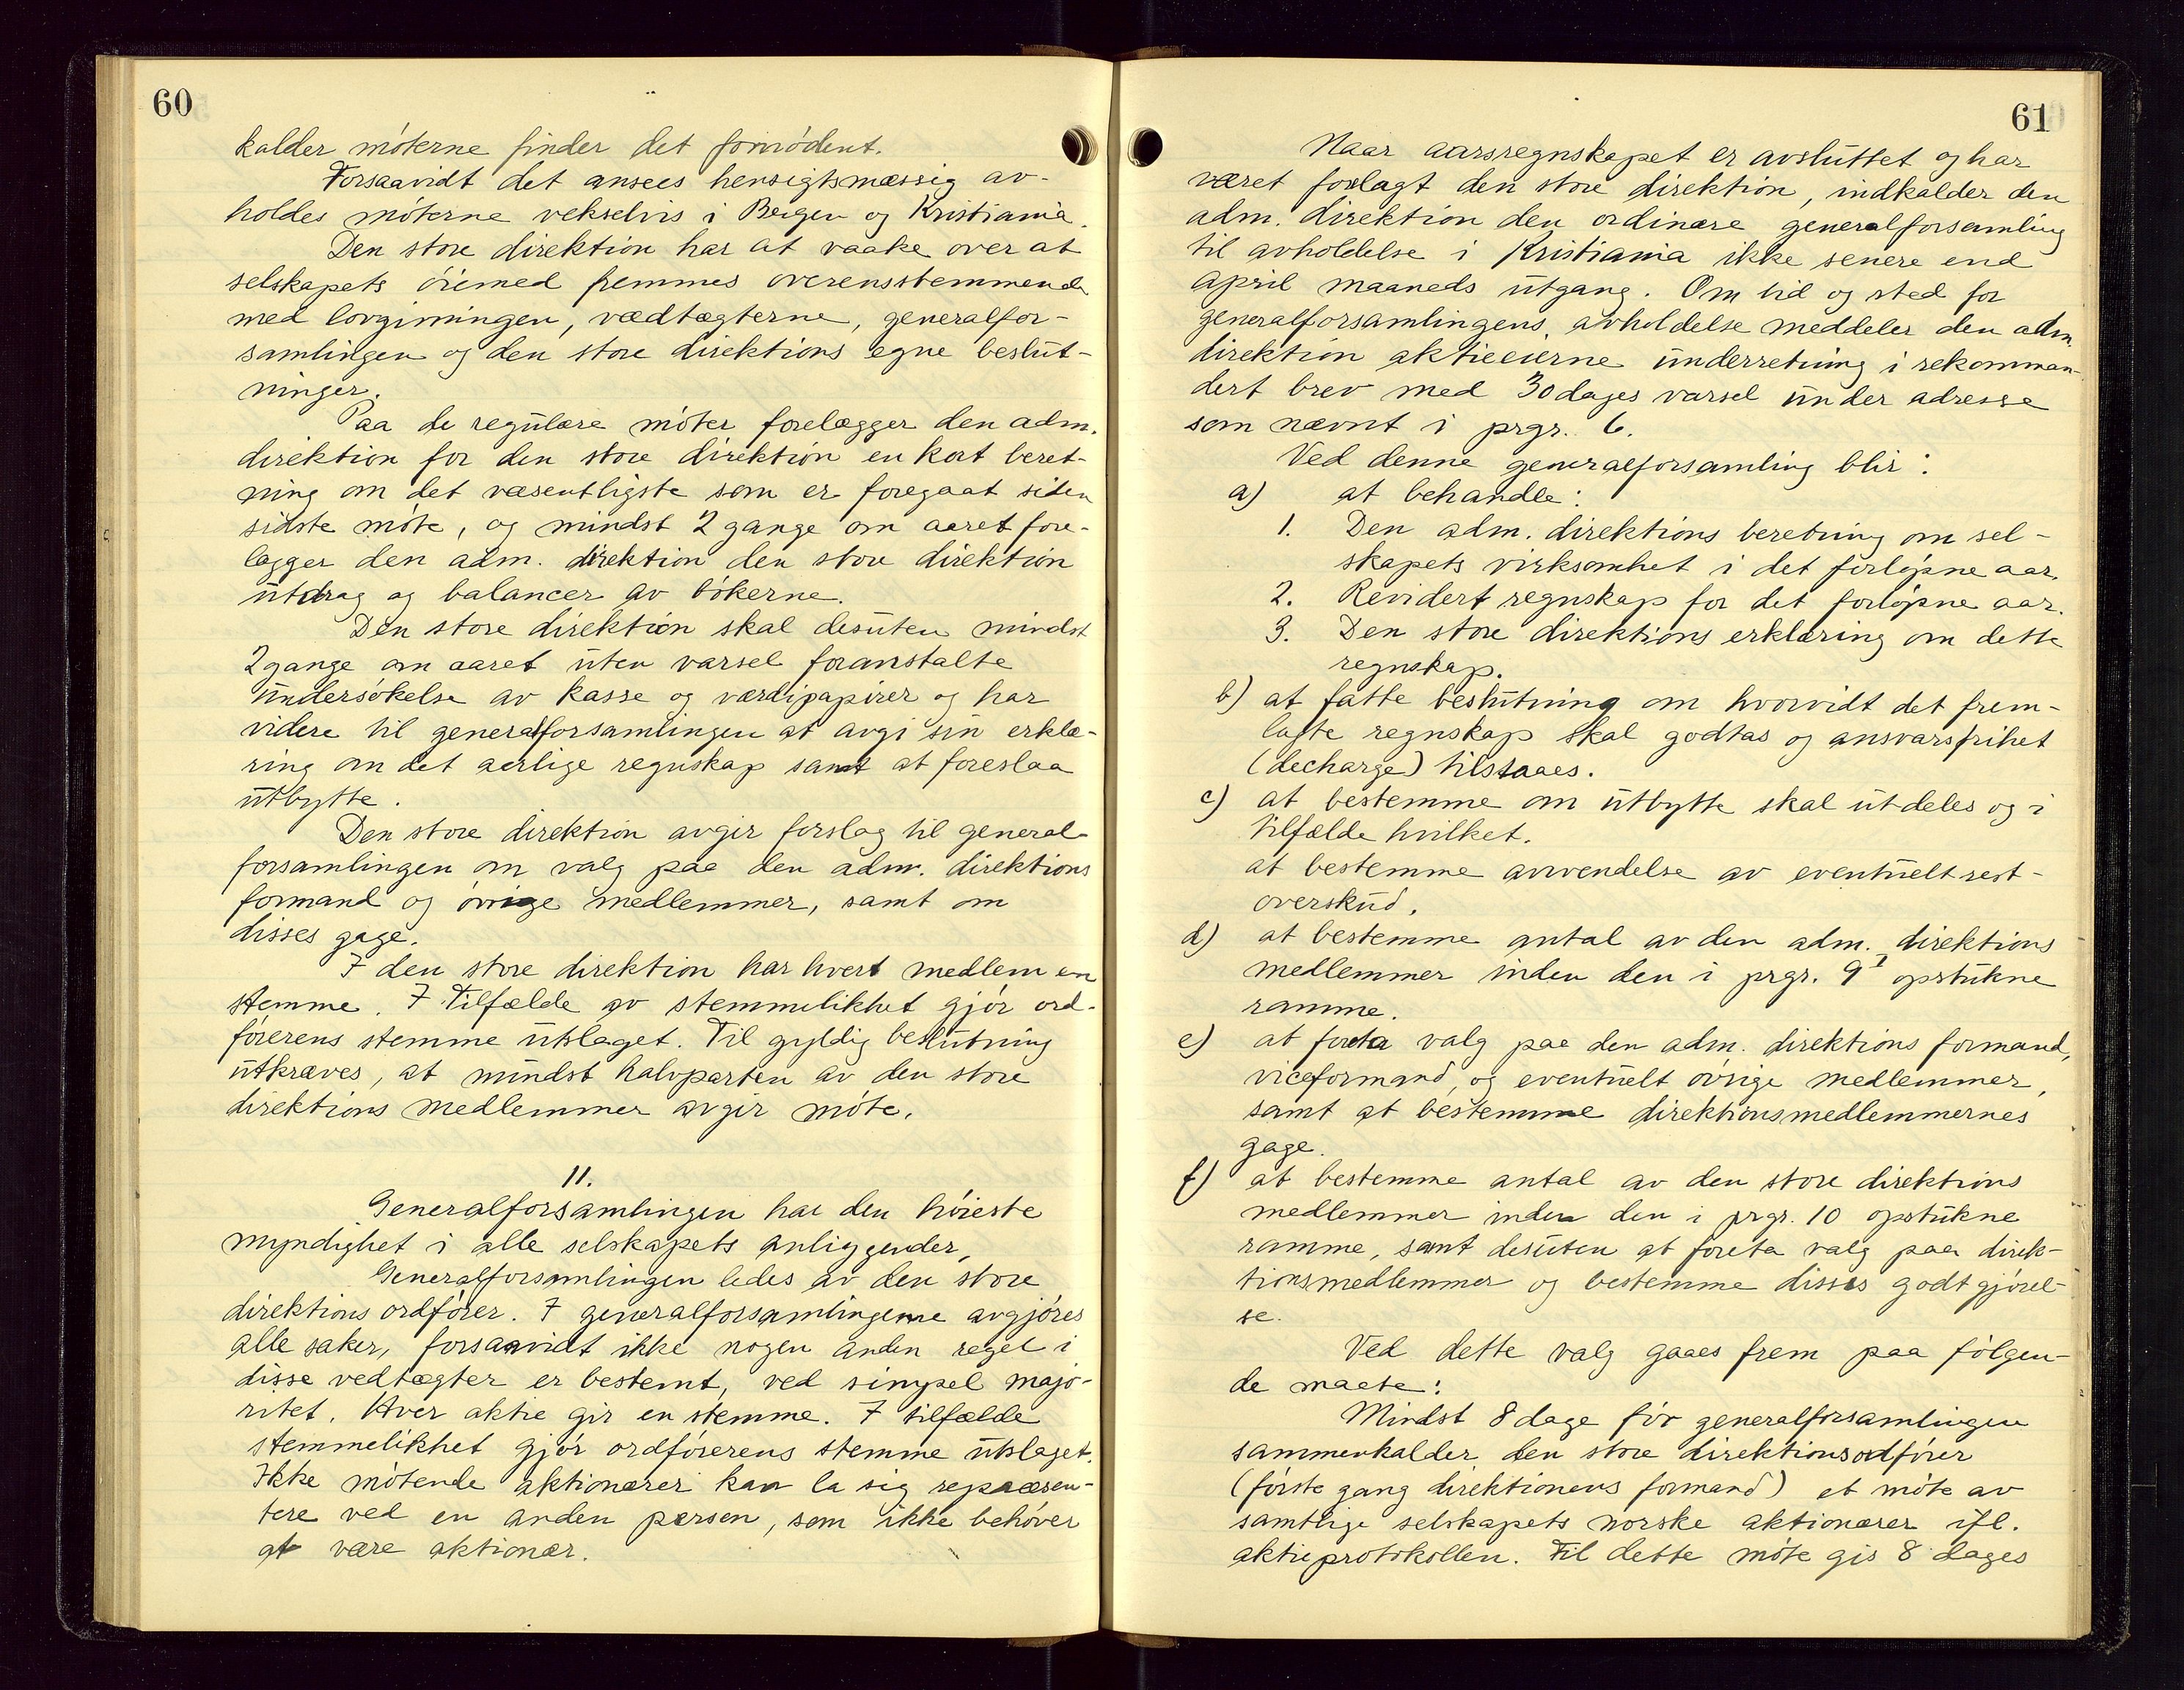 60
kalder möterne finder det fornödent.
Forsaavidt det ansees hensigtsmæssig av-
holdes möterne vekselvis i Bergen og Kristiania.
Den store direktion har at vaake over at
selskapets öiemed fremmes overensstemmende
med lovgivningen, vædtægterne, generalfor-
samlingen og den store direktions egne beslut-
ninger.
Paa de regulære möter forelægger den adm.
direktion for den store direktion en kort beret-
ning om det væsentligste som er foregaat siden
sidste möte, og mindst 2 gange om aaret fore-
lægger den adm. direktion den store direktion
utdrag og balancer av bökerne.
Den store direktion skal desuten mindst
2 gange om aaret uten varsel foranstalte
undersökelse av kasse og værdipapirer og har
videre til generalforsamlingen at avgi sin erklæ-
ring om det aarlige regnskap samt at foreslaa
utbytte.
Den store direktion avgir forslag til general-
forsamlingen om valg paa den adm. direktions
formand og övrige medlemmer, samt om
disses gage.
I den store direktion har hvert medlem en
stemme. I tilfælde av stemmelikhet gjör ord-
förerens stemme utslaget. Til gyldig beslutning
utkræves, at mindst halvparten av den store
direktions medlemmer avgir möte.
11.
Generalforsamlingen har den höieste
myndighet i alle selskapets anliggender.
Generalforsamlingen ledes av den store
direktions ordförer. I generalforsamlingerne avgjöres
alle saker, forsaavidt ikke nogen anden regel i
disse vedtægter er bestemt, ved simpel majo-
ritet. Hver aktie gir en stemme. I tilfælde
stemmelikhet gjör ordförerens stemme utslaget.
Ikke mötende aktionærer kan la sig repæresen-
tere ved en anden person, som ikke behöver
at være aktionær.
61
Naar aarsregnskapet er avsluttet og har
været forlagt den store direktion, indkalder den
adm. direktion den ordinære generalforsamling
til avholdelse i Kristiania ikke senere end
april maaneds utgang. Om tid og sted for
generalforsamlingens avholdelse meddeler den adm.
direktion aktieeierne underretning i rekomman-
dert brev med 30 dages varsel under adresse
som nævnt i prgr. 6.
Ved denne generalforsamling blir:
a) at behandle:
1. Den adm. direktions beretning om sel-
skapets virksomhet i det forløpne aar.
2. Revidert regnskap for det forløpne aar.
3. Den store direktions erklæring om dette
regnskap.
b) at fatte beslutning om hvorvidt det frem-
lagte regnskap skal godtas og ansvarsfrihet
(decharge) tilstaaes.
c) at bestemme om utbytte skal utdeles og i
tilfælde hvilket.
at bestemme anvendelse av eventuelt rest-
overskud.
d) at bestemme antal av den adm. direktions
medlemmer inden den i prgr. 9 opstukne
ramme.
e) at foreta valg paa den adm. direktions formand,
viceformand, og eventuelt övrige medlemmer,
samt at bestemme direktionsmedlemmernes
gage.
f) at bestemme antal av den store direktions
medlemmer inden den i prgr. 10 opstukne
ramme, samt desuten at foreta valg paa direk-
tionsmedlemmer og bestemme disses godtgjörel-
se.
Ved dette valg gaaes frem paa fölgen-
de maate:
Mindst 8 dage för generalforsamlingen
sammenkalder den store direktionsordförer
(förste gang direktionens formand) et möte av
samtlige selskapets norske aktionærer ifl.
aktieprotokollen. Til dette möte gis 8 dages